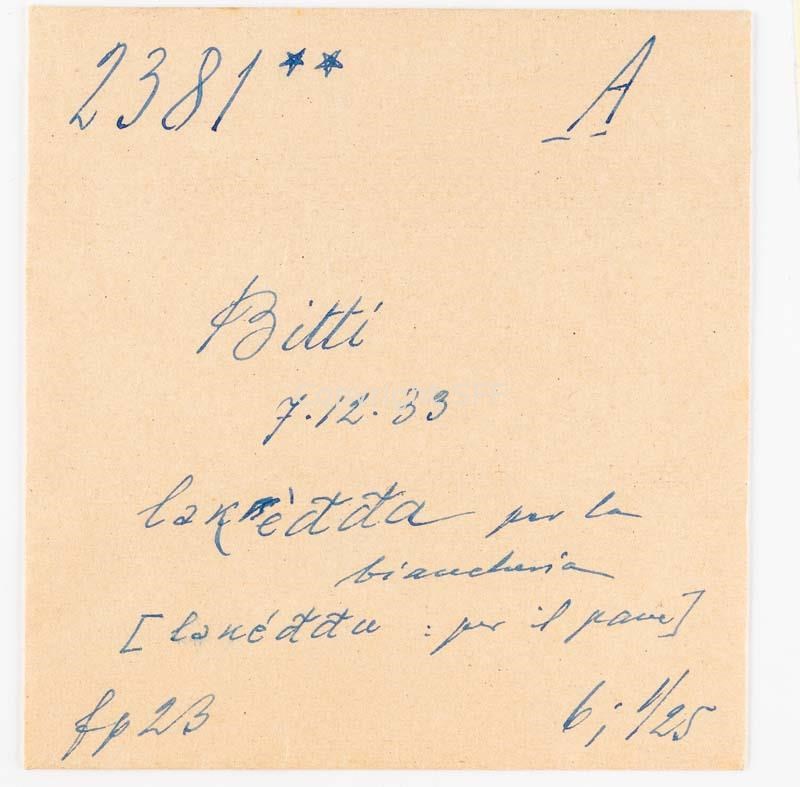 2381** A
Bitti
7.12.33
lakèđđa per la
biancheria
[lakéđđu : per il pane]
fp 23 6; 1/25